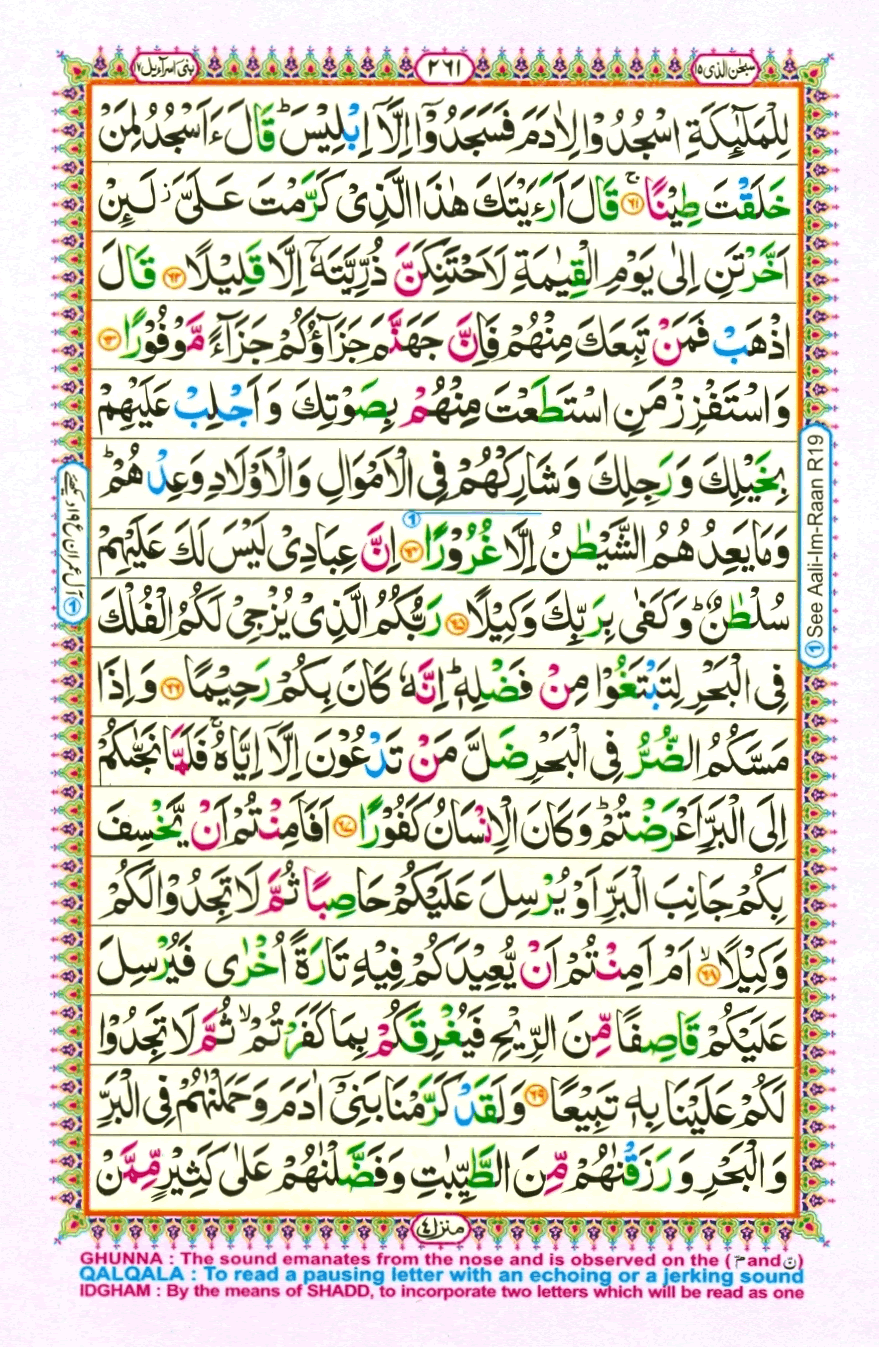 سبحٰن الذی ١٥
٢٦١
بنی اسرآءیل ١٧
لِلْمَلٰٓئِكَةِ اسْجُدُوْا لِاٰدَمَ فَسَجَدُوْۤا اِلَّاۤ اِبْلِیْسَؕ قَالَ ءَاَسْجُدُ لِمَنْ
خَلَقْتَ طِیْنًاۚ ۝٦١ قَالَ اَرَءَیْتَكَ هٰذَا الَّذِیْ كَرَّمْتَ عَلَیَّؗ لَىِٕنْ
اَخَّرْتَنِ اِلٰی یَوْمِ الْقِیٰمَةِ لَاَحْتَنِكَنَّ ذُرِّیَّتَهٗۤ اِلَّا قَلِیْلًا ۝٦٢ قَالَ
اذْهَبْ فَمَنْ تَبِعَكَ مِنْهُمْ فَاِنَّ جَهَنَّمَ جَزَآؤُكُمْ جَزَآءً مَّوْفُوْرًا ۝٦٣
وَاسْتَفْزِزْ مَنِ اسْتَطَعْتَ مِنْهُمْ بِصَوْتِكَ وَاَجْلِبْ عَلَیْهِمْ
بِخَیْلِكَ وَرَجِلِكَ وَشَارِكْهُمْ فِی الْاَمْوَالِ وَالْاَوْلَادِ وَعِدْهُمْؕ
وَمَا یَعِدُهُمُ الشَّیْطٰنُ اِلَّا غُرُوْرًا ۝٦٤ اِنَّ عِبَادِیْ لَیْسَ لَكَ عَلَیْهِمْ
سُلْطٰنٌؕ وَكَفٰی بِرَبِّكَ وَكِیْلًا ۝٦٥ رَبُّكُمُ الَّذِیْ یُزْجِیْ لَكُمُ الْفُلْكَ
فِی الْبَحْرِ لِتَبْتَغُوْا مِنْ فَضْلِهٖؕ اِنَّهٗ كَانَ بِكُمْ رَحِیْمًا ۝٦٦ وَاِذَا
مَسَّكُمُ الضُّرُّ فِی الْبَحْرِ ضَلَّ مَنْ تَدْعُوْنَ اِلَّاۤ اِیَّاهُۚ فَلَمَّا نَجّٰىكُمْ
اِلَی الْبَرِّ اَعْرَضْتُمْؕ وَكَانَ الْاِنْسَانُ كَفُوْرًا ۝٦٧ اَفَاَمِنْتُمْ اَنْ یَّخْسِفَ
بِكُمْ جَانِبَ الْبَرِّ اَوْ یُرْسِلَ عَلَیْكُمْ حَاصِبًا ثُمَّ لَا تَجِدُوْا لَكُمْ
وَكِیْلًاۙ ۝٦٨ اَمْ اَمِنْتُمْ اَنْ یُّعِیْدَكُمْ فِیْهِ تَارَةً اُخْرٰی فَیُرْسِلَ
عَلَیْكُمْ قَاصِفًا مِّنَ الرِّیْحِ فَیُغْرِقَكُمْ بِمَا كَفَرْتُمْۙ ثُمَّ لَا تَجِدُوْا
لَكُمْ عَلَیْنَا بِهٖ تَبِیْعًا ۝٦٩ وَلَقَدْ كَرَّمْنَا بَنِیْۤ اٰدَمَ وَحَمَلْنٰهُمْ فِی الْبَرِّ
وَالْبَحْرِ وَرَزَقْنٰهُمْ مِّنَ الطَّیِّبٰتِ وَفَضَّلْنٰهُمْ عَلٰی كَثِیْرٍ مِّمَّنْ
① See Aali-Im-Raan R19
① آل عمران ع ١٩ دیکھئے
منزل ٤
GHUNNA : The sound emanates from the nose and is observed on the ( مّ and نّ )
QALQALA : To read a pausing letter with an echoing or a jerking sound
IDGHAM : By the means of SHADD, to incorporate two letters which will be read as one